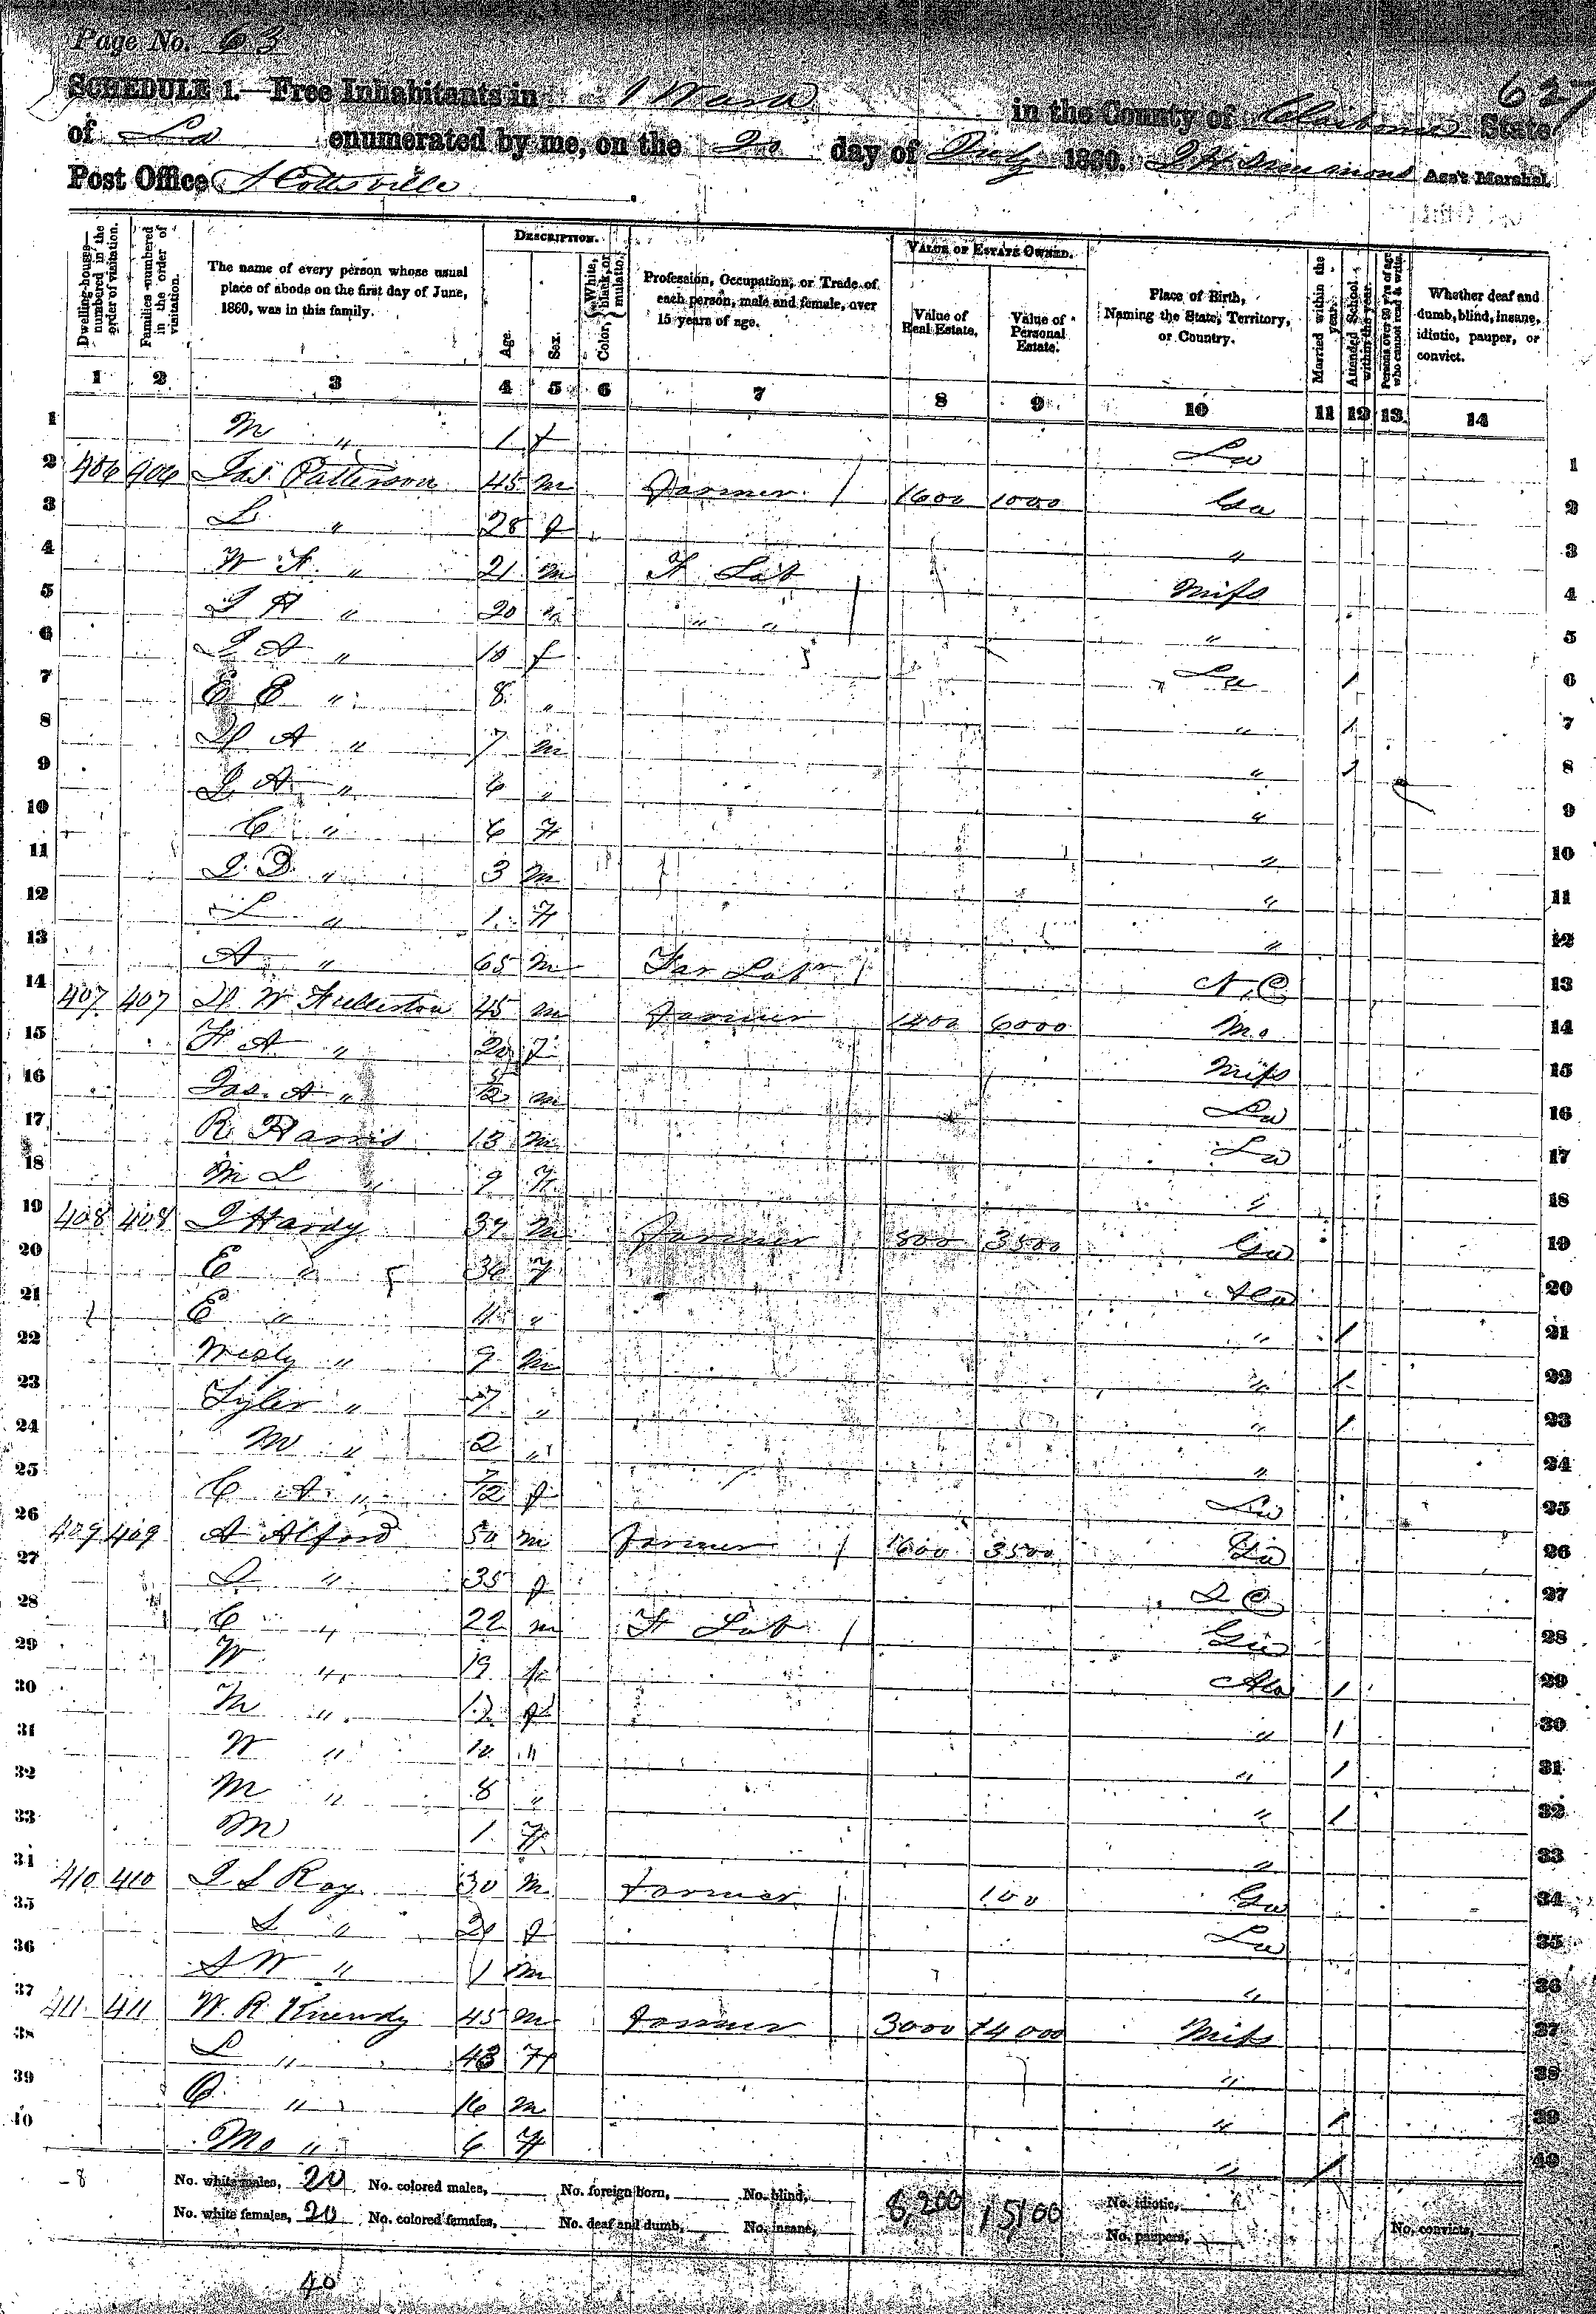 Page No. 63
627
SCHEDULE 1.—Free Inhabitants in 1 Ward in the County of Claiborne State
of La enumerated by me, on the 20 day of July 1860. Ass't Marshal.
Post Office Scottsville
Dwelling-houses—numbered in the order of visitation.
Families numbered in the order of visitation.
The name of every person whose usual place of abode on the first day of June, 1860, was in this family.
DESCRIPTION.
Age.
Sex.
Color, White, black, or mulatto.
Profession, Occupation, or Trade of each person, male and female, over 15 years of age.
VALUE OF ESTATE OWNED.
Value of Real Estate.
Value of Personal Estate.
Place of Birth, Naming the State, Territory, or Country.
Married within the year.
Attended School within the year.
Persons over 20 y'rs of age who cannot read & write.
Whether deaf and dumb, blind, insane, idiotic, pauper, or convict.
1 2 3 4 5 6 7 8 9 10 11 12 13 14
1 M " 1 f La 1
2 406 406 Jas. Patterson 45 m Farmer 1 1600 1000 Ga 2
3 L " 28 f " 3
4 W F. " 21 m F Lab Miss 4
5 J H " 20 " " " " 5
6 " 10 f La 1 6
7 E E " 8 " " 1 7
8 A " 7 m " 1 8
9 A " 6 " " 9
10 C " 6 F " 10
11 J. D. " 3 m " 11
12 L " 1 F " 12
13 A " 65 m Far Labr N.C 13
14 407 407 W Fullerton 45 m Farmer 1400 6000 Mo 14
15 F A " 20 f Miss 15
16 Jas. A " /12 m La 16
17 R Harris 13 m La 17
18 M L " 9 F " 18
19 408 408 J Hardy 37 m Farmer 800 3500 Ga 19
20 E " 36 f Ala 20
21 E " 11 " " 1 21
22 Wesly " 9 m " 1 22
23 Tyler " 7 " " 1 23
24 M " 2 " " 24
25 C A " 7/12 f La 25
26 409 409 A Alford 50 m Farmer 1 1600 3500 Ga 26
27 " 35 f S C 27
28 C " 22 m F Lab 1 Ga 28
29 W " 19 Ala 1 29
30 M " f " 1 30
31 W " 10 " " 1 31
32 M " 8 " " 1 32
33 M 1 F " 33
34 410 410 J S Ray 30 m Farmer 100 Ga 34
35 S " 20 f La 35
36 S W " 1 m " 36
37 411 411 W. R. 45 m Farmer 3000 Miss 37
38 L " 43 F " 38
39 " 16 m " 1 39
40 Mo " 6 F " 1 40
No. white males, 20 No. colored males, No. foreign born, No. blind, 8,200 15,100 No. idiotic,
No. white females, 20 No. colored females, No. deaf and dumb, No. insane, No. paupers, No. convicts,
40